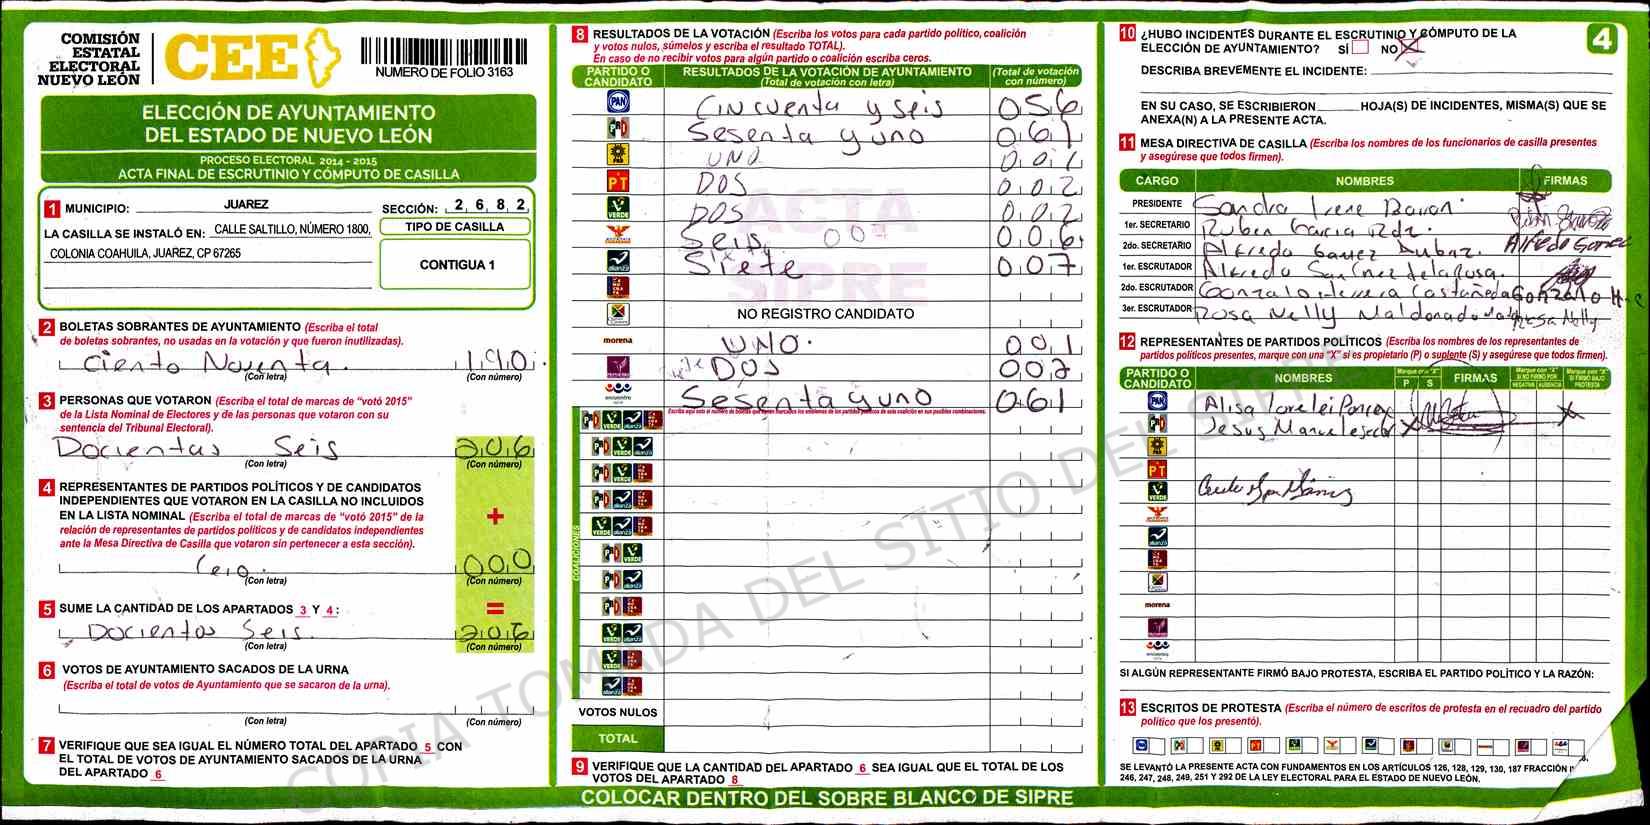 COMISIÓN
ESTATAL
ELECTORAL
NUEVO LEÓN
CEE
NUMERO DE FOLIO 3163
ELECCIÓN DE AYUNTAMIENTO
DEL ESTADO DE NUEVO LEÓN
PROCESO ELECTORAL 2014 - 2015
ACTA FINAL DE ESCRUTINIO Y CÓMPUTO DE CASILLA
1 MUNICIPIO: JUAREZ SECCIÓN: 2 6 8 2
LA CASILLA SE INSTALÓ EN: CALLE SALTILLO, NÚMERO 1800,
COLONIA COAHUILA, JUAREZ, CP 67265
TIPO DE CASILLA
CONTIGUA 1
2 BOLETAS SOBRANTES DE AYUNTAMIENTO (Escriba el total
de boletas sobrantes, no usadas en la votación y que fueron inutilizadas).
Ciento Noventa. 190
(Con letra) (Con número)
3 PERSONAS QUE VOTARON (Escriba el total de marcas de “votó 2015”
de la Lista Nominal de Electores y de las personas que votaron con su
sentencia del Tribunal Electoral).
Docientas Seis 206
(Con letra) (Con número)
4 REPRESENTANTES DE PARTIDOS POLÍTICOS Y DE CANDIDATOS
INDEPENDIENTES QUE VOTARON EN LA CASILLA NO INCLUIDOS
EN LA LISTA NOMINAL (Escriba el total de marcas de “votó 2015” de la
relación de representantes de partidos políticos y de candidatos independientes
ante la Mesa Directiva de Casilla que votaron sin pertenecer a esta sección).
+
Cero. 000
(Con letra) (Con número)
5 SUME LA CANTIDAD DE LOS APARTADOS 3 Y 4:
=
Docientos Seis. 206
(Con letra) (Con número)
6 VOTOS DE AYUNTAMIENTO SACADOS DE LA URNA
(Escriba el total de votos de Ayuntamiento que se sacaron de la urna).
(Con letra) (Con número)
7 VERIFIQUE QUE SEA IGUAL EL NÚMERO TOTAL DEL APARTADO 5 CON
EL TOTAL DE VOTOS DE AYUNTAMIENTO SACADOS DE LA URNA
DEL APARTADO 6
8 RESULTADOS DE LA VOTACIÓN (Escriba los votos para cada partido político, coalición
y votos nulos, súmelos y escriba el resultado TOTAL).
En caso de no recibir votos para algún partido o coalición escriba ceros.
PARTIDO O CANDIDATO RESULTADOS DE LA VOTACIÓN DE AYUNTAMIENTO (Total de votación con letra) (Total de votación con número)
PAN Cincuenta y seis 056
PRI Sesenta y uno 061
PRD UNO 001
PT DOS 002
VERDE DOS 002
Seis 006
alianza Siete 007
ACTA
SIPRE
NO REGISTRO CANDIDATO
morena UNO. 001
DOS 002
encuentro Sesenta y uno 061
COALICIONES
VOTOS NULOS
TOTAL
9 VERIFIQUE QUE LA CANTIDAD DEL APARTADO 6 SEA IGUAL QUE EL TOTAL DE LOS
VOTOS DEL APARTADO 8
COLOCAR DENTRO DEL SOBRE BLANCO DE SIPRE
4
10 ¿HUBO INCIDENTES DURANTE EL ESCRUTINIO Y CÓMPUTO DE LA
ELECCIÓN DE AYUNTAMIENTO? SÍ NO X
DESCRIBA BREVEMENTE EL INCIDENTE:
EN SU CASO, SE ESCRIBIERON HOJA(S) DE INCIDENTES, MISMA(S) QUE SE
ANEXA(N) A LA PRESENTE ACTA.
11 MESA DIRECTIVA DE CASILLA (Escriba los nombres de los funcionarios de casilla presentes
y asegúrese que todos firmen).
CARGO NOMBRES FIRMAS
PRESIDENTE Sandra Irene
1er. SECRETARIO Ruben Garcia Rdz.
2do. SECRETARIO Alfredo Alfredo Gomez
1er. ESCRUTADOR Alfredo Sanchez de la Rosa.
2do. ESCRUTADOR Gonzalo Herrera Castañeda Gonzalo H
3er. ESCRUTADOR Rosa Nelly Maldonado Rosa Nelly
12 REPRESENTANTES DE PARTIDOS POLÍTICOS (Escriba los nombres de los representantes de
partidos políticos presentes, marque con una “X” si es propietario (P) o suplente (S) y asegúrese que todos firmen).
PARTIDO O CANDIDATO NOMBRES Marque con "X" P S FIRMAS Marque con "X" SI NO FIRMÓ POR NEGATIVA AUSENCIA Marque con "X" SI FIRMÓ BAJO PROTESTA
PAN
PRI Jesus Manuel X X
PRD
PT
VERDE
alianza
morena
encuentro
SI ALGÚN REPRESENTANTE FIRMÓ BAJO PROTESTA, ESCRIBA EL PARTIDO POLÍTICO Y LA RAZÓN:
13 ESCRITOS DE PROTESTA (Escriba el número de escritos de protesta en el recuadro del partido
político que los presentó).
SE LEVANTÓ LA PRESENTE ACTA CON FUNDAMENTOS EN LOS ARTÍCULOS 126, 128, 129, 130, 187 FRACCIÓN
246, 247, 248, 249, 251 Y 292 DE LA LEY ELECTORAL PARA EL ESTADO DE NUEVO LEÓN.
COPIA TOMADA DEL SITIO DEL SIPRE